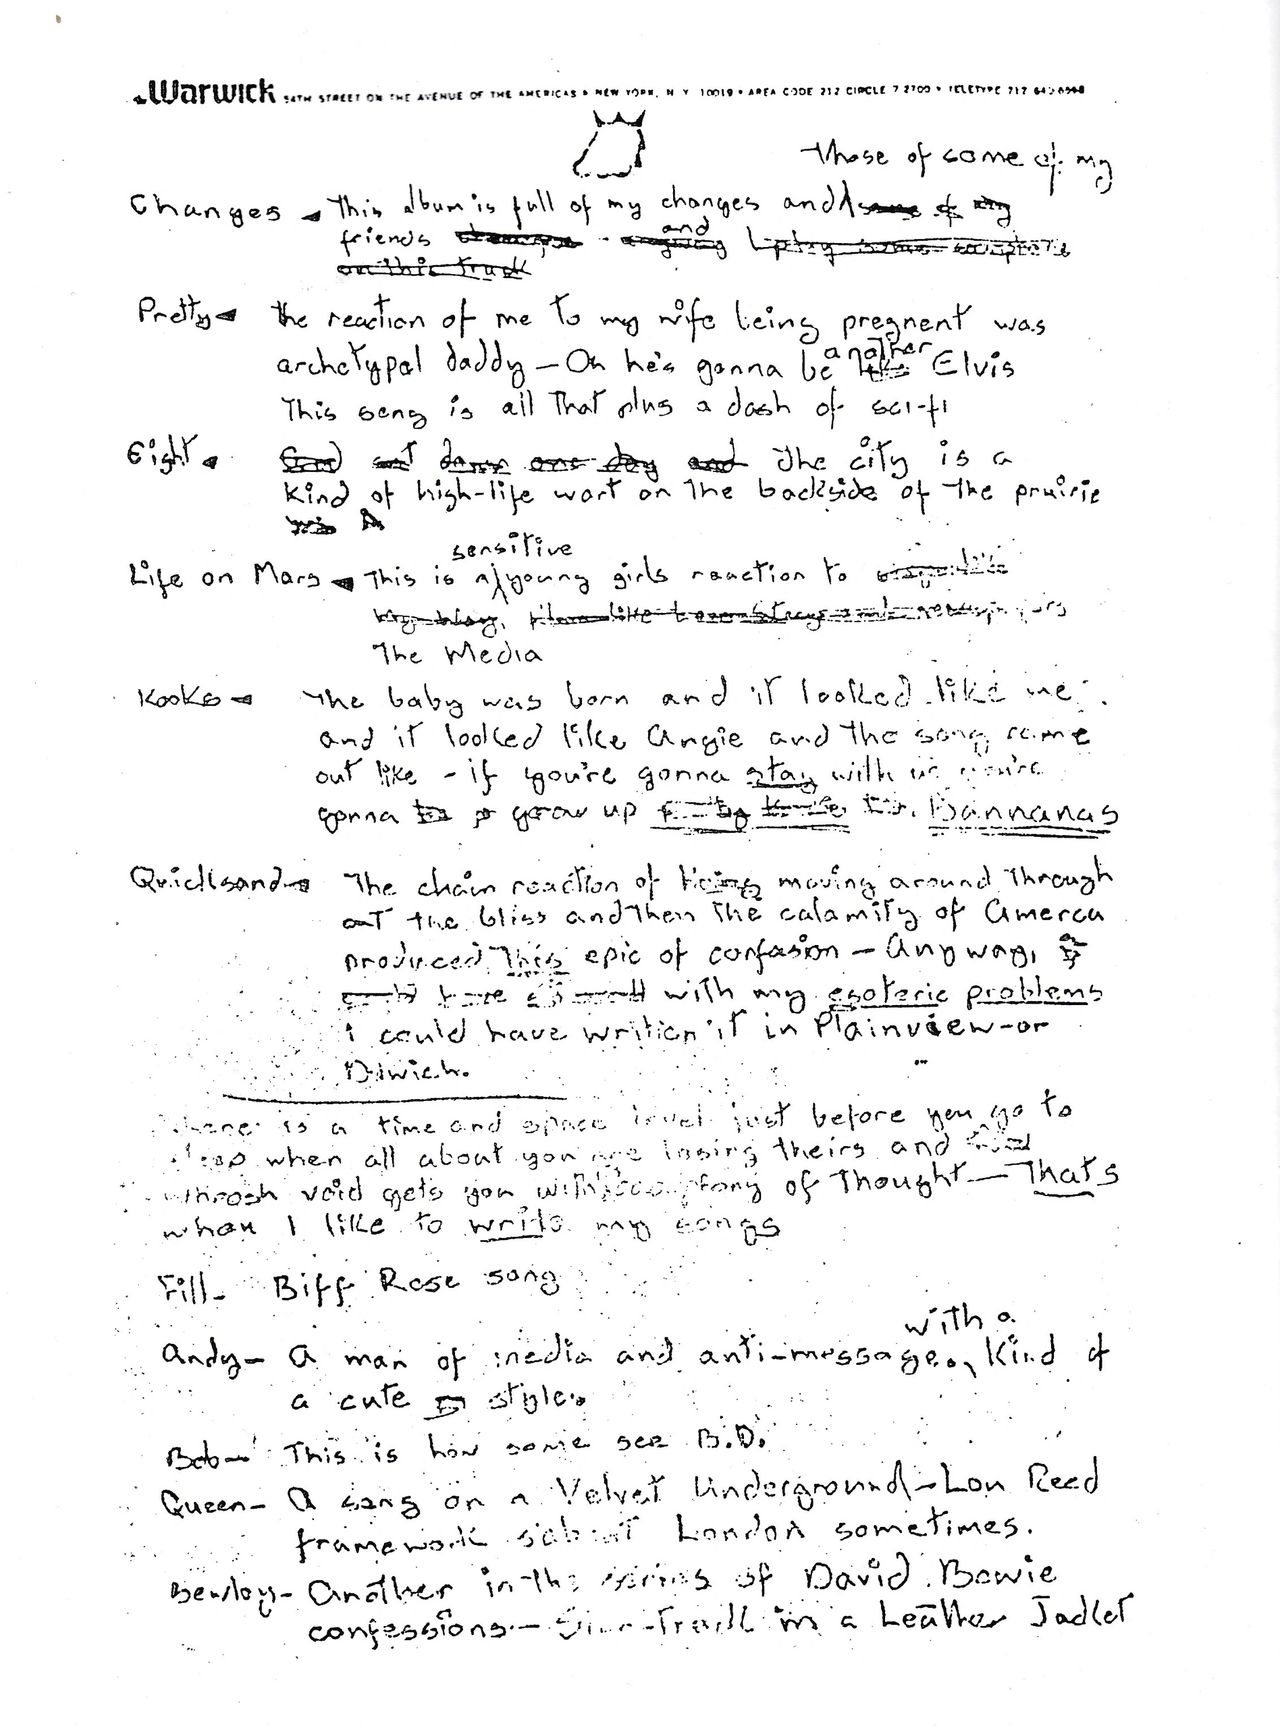 Warwick 54TH STREET ON THE AVENUE OF THE AMERICAS • NEW YORK, N Y 10019 • AREA CODE 212 CIRCLE 7 2700 • TELETYPE
those of some of my
Changes - This album is full of my changes and some of my
friends and
on this track
Pretty - the reaction of me to my wife being pregnent was
archetypal daddy - Oh he's gonna be another Elvis
This song is all that plus a dash of sci-fi
Eight - sat down one day and The city is a
kind of high-life wart on the backside of the prairie
sensitive
Life on Mars - This is a young girls reaction to
The Media
Kooks - The baby was born and it looked like me
and it looked like Angie and the song came
out like - if you're gonna stay with us you're
gonna grow up Bannanas
Quicksand - The chain reaction of moving around through
out the bliss and then the calamity of America
produced this epic of confusion - Anyway, 
with my esoteric problems
i could have written it in Plainview - or
Dulwich.
There is a time and space level just before you go to
sleep when all about you are losing theirs and
whoosh void gets you with of thought - That's
when I like to write my songs
Fill - Biff Rose song
with a
Andy - A man of media and anti-message, kind of
a cute style.
Bob - This is how some see B.D.
Queen - A song on a Velvet Underground - Lou Reed
framework London sometimes.
Bewlay - Another in the series of David Bowie
confessions - in a Leather Jacket